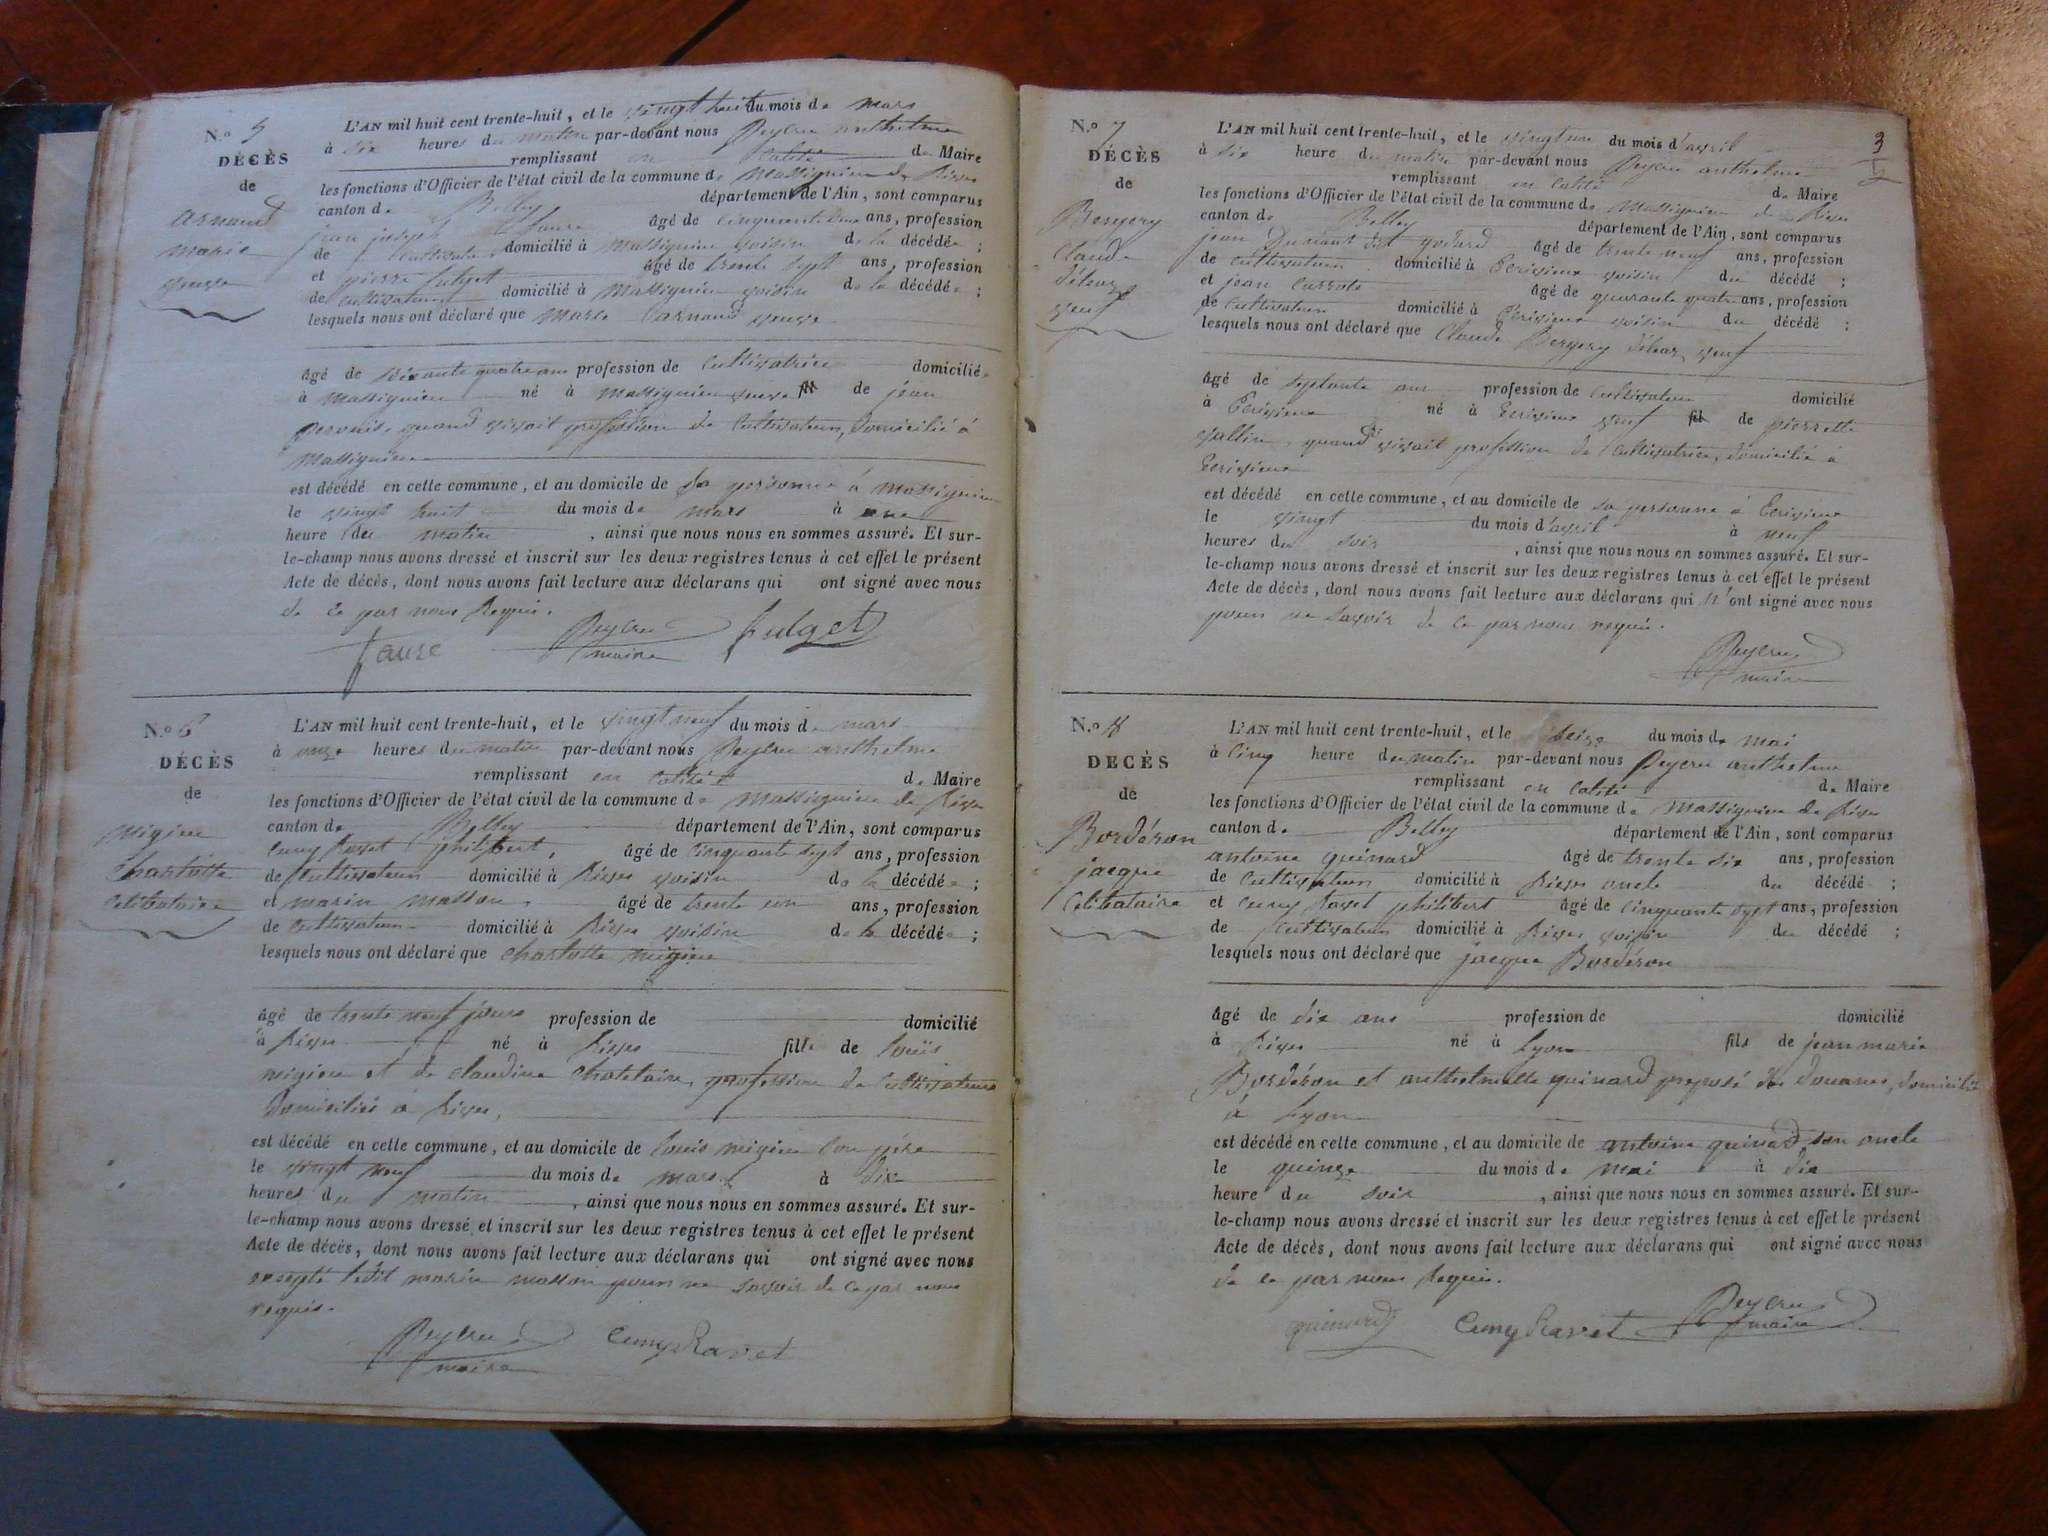 N.o 5
DÉCÈS
de
arnaud
marie
veuve
L'AN mil huit cent trente-huit, et le vingt huit du mois de mars
à six heures du matin par-devant nous Peyeru anthelme
remplissant en calité de Maire
les fonctions d'Officier de l'état civil de la commune de Massignieu de Rives
canton de Belley département de l'Ain, sont comparus
jean joseph faure âgé de cinquante deux ans, profession
de cultivateur domicilié à Massignieu voisin de la décédée ;
et pierre fulget âgé de trente sept ans, profession
de cultivateur domicilié à Massignieu voisin de la décédée ;
lesquels nous ont déclaré que marie arnaud veuve
âgé de soixante quatre ans profession de cultivatrice domiciliée
à Massignieu né à Massignieu veuve de jean
quand vivait profession de cultivateur, domicilié à
Massignieu
est décédé en cette commune, et au domicile de sa personne à Massignieu
le vingt huit du mois de mars à une
heure du matin , ainsi que nous nous en sommes assuré. Et sur-
le-champ nous avons dressé et inscrit sur les deux registres tenus à cet effet le présent
Acte de décès, dont nous avons fait lecture aux déclarans qui ont signé avec nous
de ce par nous Requis.
faure Peyeru maire fulget
N.o 6
DÉCÈS
de
migieu
charlotte
celibataire
L'AN mil huit cent trente-huit, et le vingt neuf du mois de mars
à onze heures du matin par-devant nous Peyeru anthelme
remplissant en calité de Maire
les fonctions d'Officier de l'état civil de la commune de Massignieu de Rives
canton de Belley département de l'Ain, sont comparus
Cuny Ravet philibert, âgé de cinquante sept ans, profession
de cultivateur domicilié à Rives voisin de la décédée ;
et marin masson, âgé de trente un ans, profession
de cultivateur domicilié à Rives voisin de la décédée ;
lesquels nous ont déclaré que charlotte migieu
âgé de trente neuf jours profession de domicilié
à Rives né à Rives fille de Louis
migieu et de claudine chatelain, profession de cultivateurs
domiciliés à Rives,
est décédé en cette commune, et au domicile de Louis migieu son père
le vingt neuf du mois de mars à dix
heures du matin , ainsi que nous nous en sommes assuré. Et sur-
le-champ nous avons dressé et inscrit sur les deux registres tenus à cet effet le présent
Acte de décès, dont nous avons fait lecture aux déclarans qui ont signé avec nous
excepté ledit marin masson pour ne savoir de ce par nous
requis.
Peyeru maire Cuny Ravet
3
N.o 7
DÉCÈS
de
Bergery
Claude
veuf
L'AN mil huit cent trente-huit, et le vingt un du mois d'avril
à six heure du matin par-devant nous Peyeru anthelme
remplissant en calité de Maire
les fonctions d'Officier de l'état civil de la commune de Massignieu de Rives
canton de Belley département de l'Ain, sont comparus
jean dit godard âgé de trente neuf ans, profession
de cultivateur domicilié à Ecrivieux voisin du décédé ;
et jean âgé de quarante quatre ans, profession
de cultivateur domicilié à Ecrivieux voisin du décédé ;
lesquels nous ont déclaré que Claude Bergery veuf
âgé de septante ans profession de cultivateur domicilié
à Ecrivieux né à Ecrivieux veuf fils de pierrette
quand vivait profession de cultivatrice, domicilié à
Ecrivieux
est décédé en cette commune, et au domicile de sa personne à Ecrivieux
le vingt du mois d'avril à neuf
heures du soir , ainsi que nous nous en sommes assuré. Et sur-
le-champ nous avons dressé et inscrit sur les deux registres tenus à cet effet le présent
Acte de décès, dont nous avons fait lecture aux déclarans qui n'ont signé avec nous
pour ne savoir de ce par nous requis.
Peyeru maire
N.o 8
DECÈS
de
Bordéron
jacque
Celibataire
L'AN mil huit cent trente-huit, et le seize du mois de mai
à cinq heure du matin par-devant nous Peyeru anthelme
remplissant en calité de Maire
les fonctions d'Officier de l'état civil de la commune de Massignieu de Rives
canton de Belley département de l'Ain, sont comparus
antoine guinard âgé de trente six ans, profession
de cultivateur domicilié à Rives oncle du décédé ;
et Cuny Ravet philibert âgé de cinquante sept ans, profession
de cultivateur domicilié à Rives voisin du décédé ;
lesquels nous ont déclaré que jacque Bordéron
âgé de dix ans profession de domicilié
à Rives né à Lyon fils de jean marie
Bordéron et anthelmette guinard preposé des douanes, domicilié
à Lyon
est décédé en cette commune, et au domicile de antoine guinard son oncle
le quinze du mois de mai à dix
heure du soir , ainsi que nous nous en sommes assuré. Et sur-
le-champ nous avons dressé et inscrit sur les deux registres tenus à cet effet le présent
Acte de décès, dont nous avons fait lecture aux déclarans qui ont signé avec nous
de ce par nous Requis.
guinard Cuny Ravet Peyeru maire